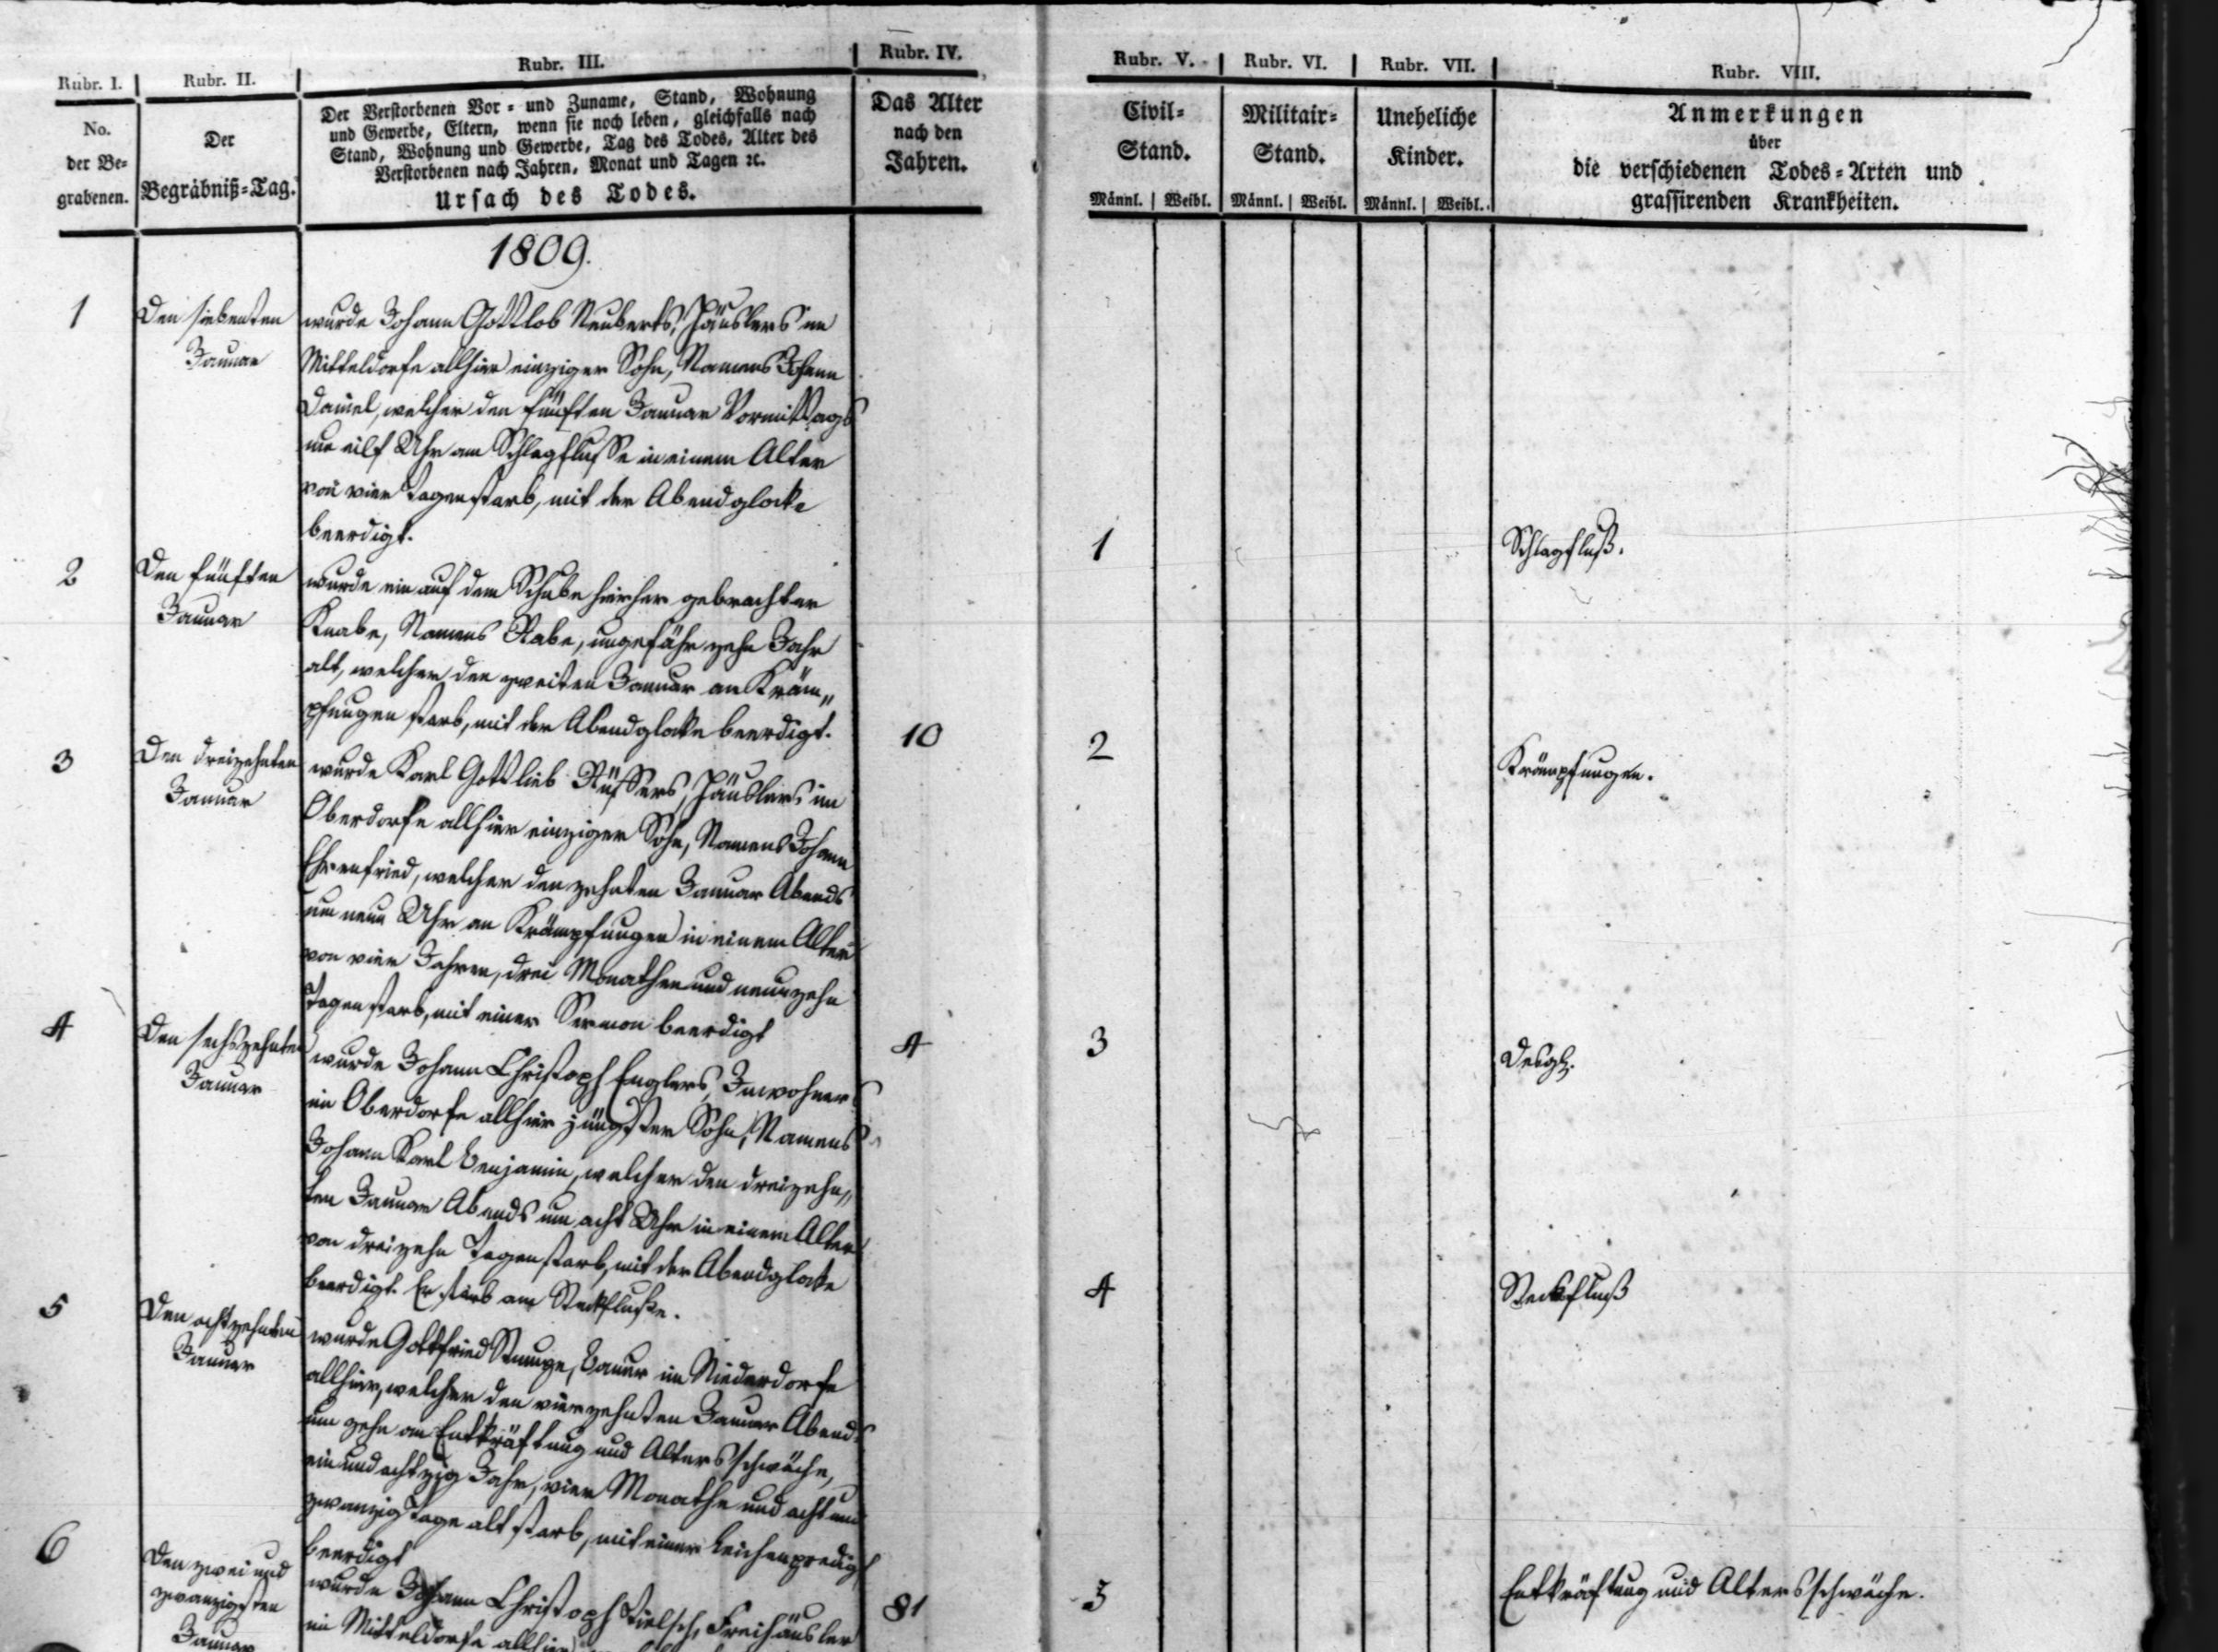 Rubr. I.
Rubr. II.
Rubr. III.
Rubr. IV.
No.
der Be=
grabenen.
Der
Begräbniß=Tag.
Der Verstorbenen Vor= und Zuname, Stand, Wohnung
und Gewerbe, Eltern, wenn sie noch leben, gleichfalls nach
Stand, Wohnung und Gewerbe, Tag des Todes, Alter des
Verstorbenen nach Jahren, Monat und Tagen ꝛc.
Ursach des Todes.
Das Alter
nach den
Jahren.
1809.
1
Den siebenten
Januar
wurde Johann Gottlob Neuberts, Häuslers im
Mitteldorfe allhier einziger Sohn, Namens Johann
Daniel, welcher den fünften Januar Vormittags
um eilf Uhr am Schlagflusse in einem Alter
von vier Tagen starb, mit der Abendglocke
beerdigt.
2
Den fünften
Januar
wurde ein auf dem Schube hierher gebrachter
Knabe, Namens Rabe, ungefähr zehn Jahr
alt, welcher den zweiten Januar an Kräm„
pfungen starb, mit der Abendglocke beerdigt.
10
3
Den dreizehnten
Januar
wurde Karl Gottlieb Rüffers, Häuslers im
Oberdorfe allhier einziger Sohn, Namens Johann
Ehrenfried, welcher den zehnten Januar Abends
um neun Uhr an Krämpfungen in einem Alter
von vier Jahren, drei Monathen und neunzehn
Tagen starb, mit einer Sermon beerdigt
4
4
Den sechszehnten
Januar
wurde Johann Christoph Englers, Inwohners
im Oberdorfe allhier jüngster Sohn, Namens
Johann Karl Benjamin, welcher den dreizehn„
ten Januar Abends um acht Uhr in einem Alter
von dreizehn Tagen starb, mit der Abendglocke
beerdigt. Er starb am Steckflusse.
5
Den achtzehnten
Januar
wurde Gottfried Bauer im Niederdorfe
allhier, welcher den vierzehnten Januar Abends
um zehn an Entkräftung und Altersschwäche,
ein und achtzig Jahr, vier Monathe und acht und
zwanzig Tage alt starb, mit einer Leichenpredigt
beerdigt
81
6
Den zwei und
zwanzigsten
Januar
wurde Johann Christoph Tielsch, Freihäusler
im Mitteldorfe allhier
Rubr. V.
Rubr. VI.
Rubr. VII.
Rubr. VIII.
Civil=
Stand.
Militair=
Stand.
Uneheliche
Kinder.
Anmerkungen
über
die verschiedenen Todes=Arten und
grassirenden Krankheiten.
Männl. Weibl. Männl. Weibl. Männl. Weibl.
1
Schlagfluß.
2
Krämpfungen.
3
Desgl.
4
Steckfluß
5
Entkräftung und Altersschwäche.